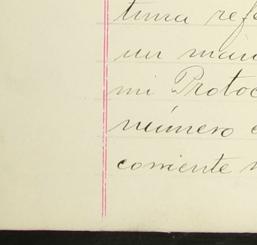 tura refe
un man
mi Protoc
número e
corriente